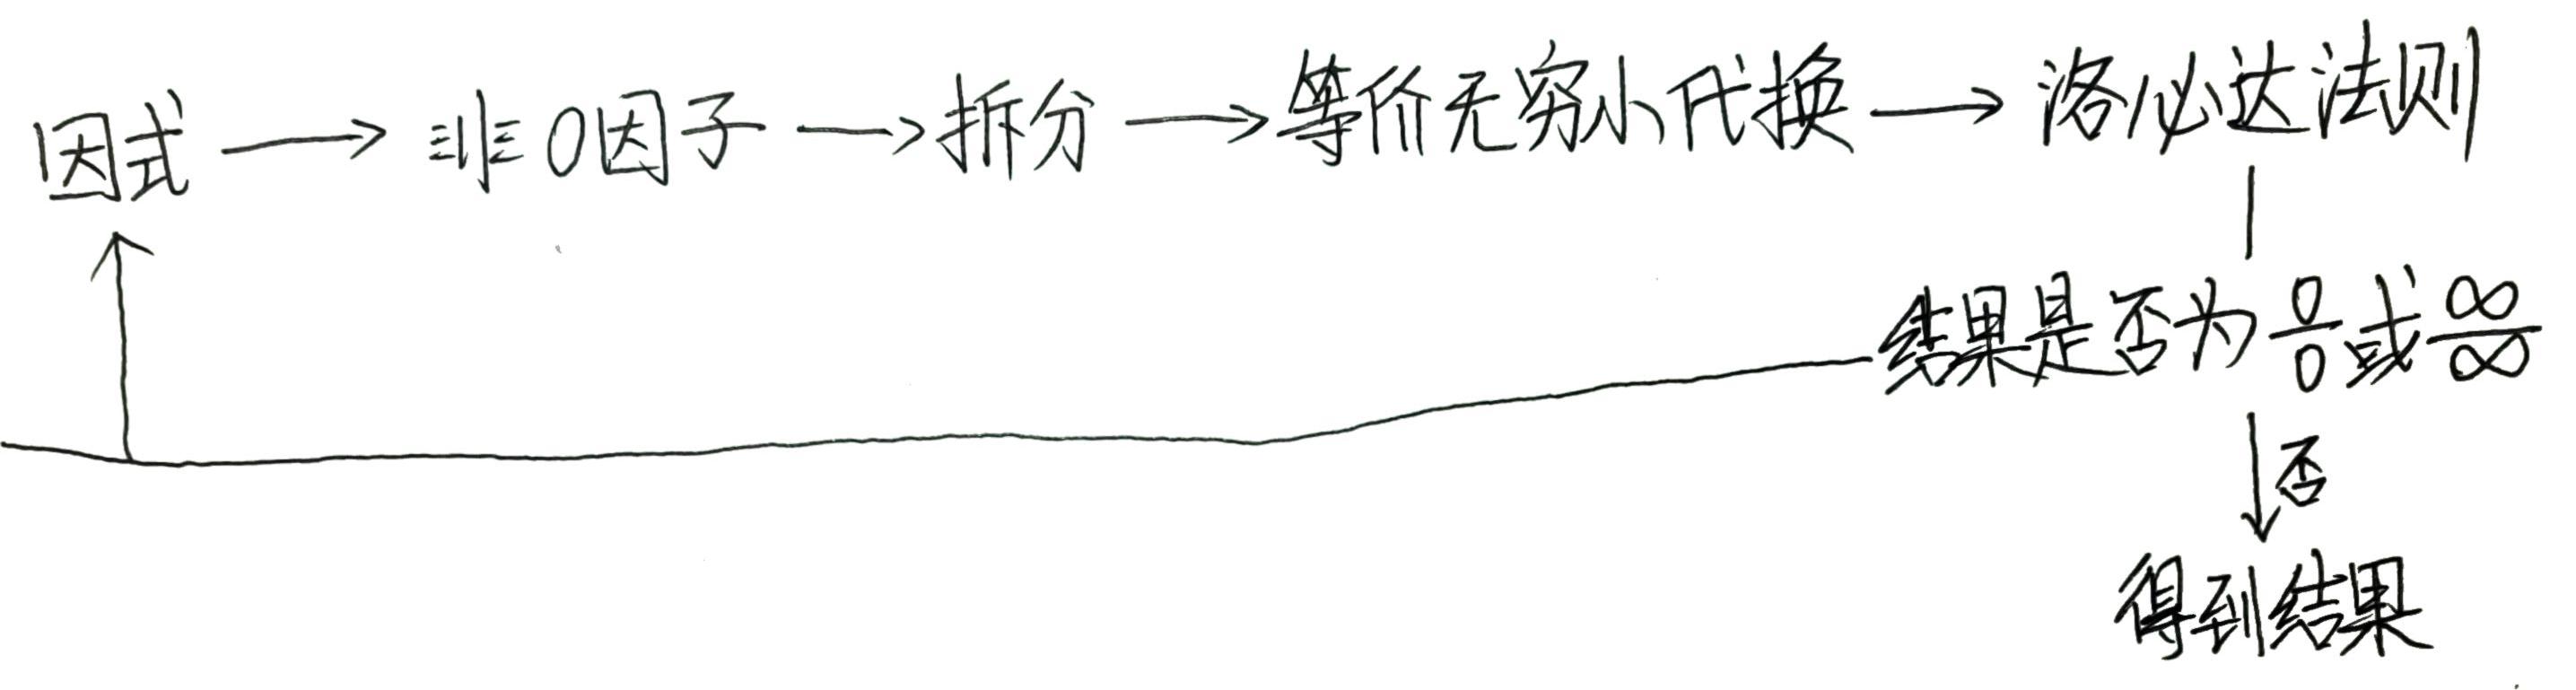 因式 → 非0因子 → 拆分 → 等价无穷小代换 → 洛必达法则
结果是否为 0/0 或 ∞/∞
否
得到结果